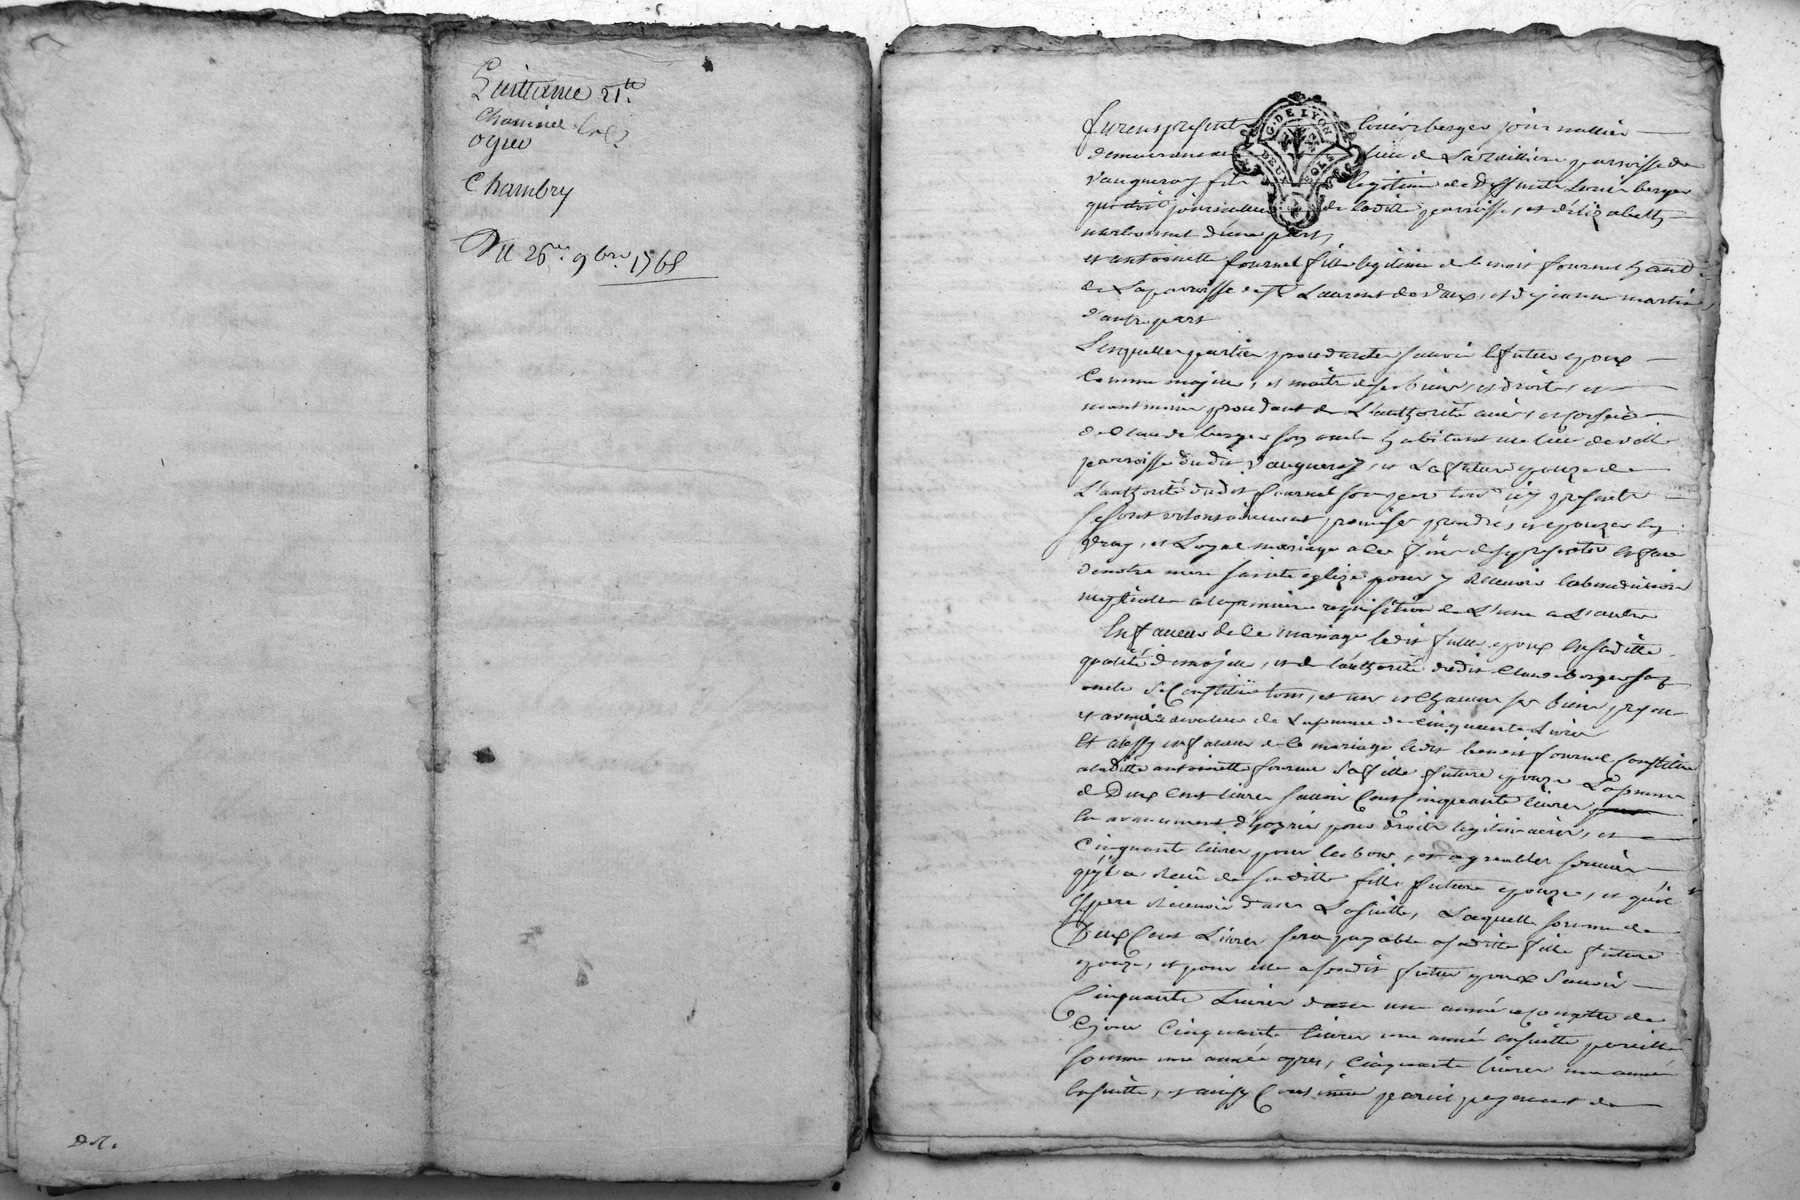 Quittance 21.te
ogier
Chambry
Du 26.e 9bre 1768
G. DE LYON
DEUX SOLS
furent present louis berger journallier
demeurant au lieu de Larcilliere parroisse de
Vaugneray fils legitime de deffunt Louis berger
quand vivoit journallier de ladite parroisse, et d'elizabeth
d'une part,
et antoinette fournel fille legitime de benoit fournel habitant
de La parroisse de St Laurent de Vaux, et de jeanne martin,
d'autre part
Lesquelles parties procedantes sçavoir le futur epoux
Comme majeur, et maitre de ses biens, et droits, et
neantmoins procedant de L'authorité avis, et conseil
de Claude berger son oncle habitant au lieu de
parroisse dudit Vaugneray, et La future epouze de
L'authorité dudit fournel son pere tous icy presents
se sont volontairement promis se prendre, et epouzer en
vray, et Loyal mariage a ces fins de se presenter en face
de notre mere sainte eglize pour y recevoir la benediction
nuptialle a la premiere requisition de L'une a L'autre
En faveur de Ce mariage ledit futur epoux En sa ditte
qualité de majeur, et de l'authorité dudit Claude berger son
oncle Se Constitue tous, et un chacuns ses biens presents
et a venir de valleur de La somme de cinquante Livres
Et aussy en faveur de ce mariage ledit benoit fournel Constitue
a laditte antoinette fournel Sa fille future epouze La somme
de Deux Cent livres sçavoir Cent Cinquante livres
en avancement d'hoyrie pour droits legitimaires, et
Cinquante livres pour les bons, et agreables services
qu'il a receu de sa ditte fille future epouze, et qu'il
Espere recevoir dans La suitte, Laquelle somme de
Deux Cent Livres sera payable a sa ditte fille future
epouze, et pour elle a sondit futur epoux Sçavoir
Cinquante Livres dans une année a Compter de
Ce jour Cinquante livres une année ensuitte pareille
somme une année apres, Cinquante livres une année
Ensuitte, et ainsy Continuer pareil payement de